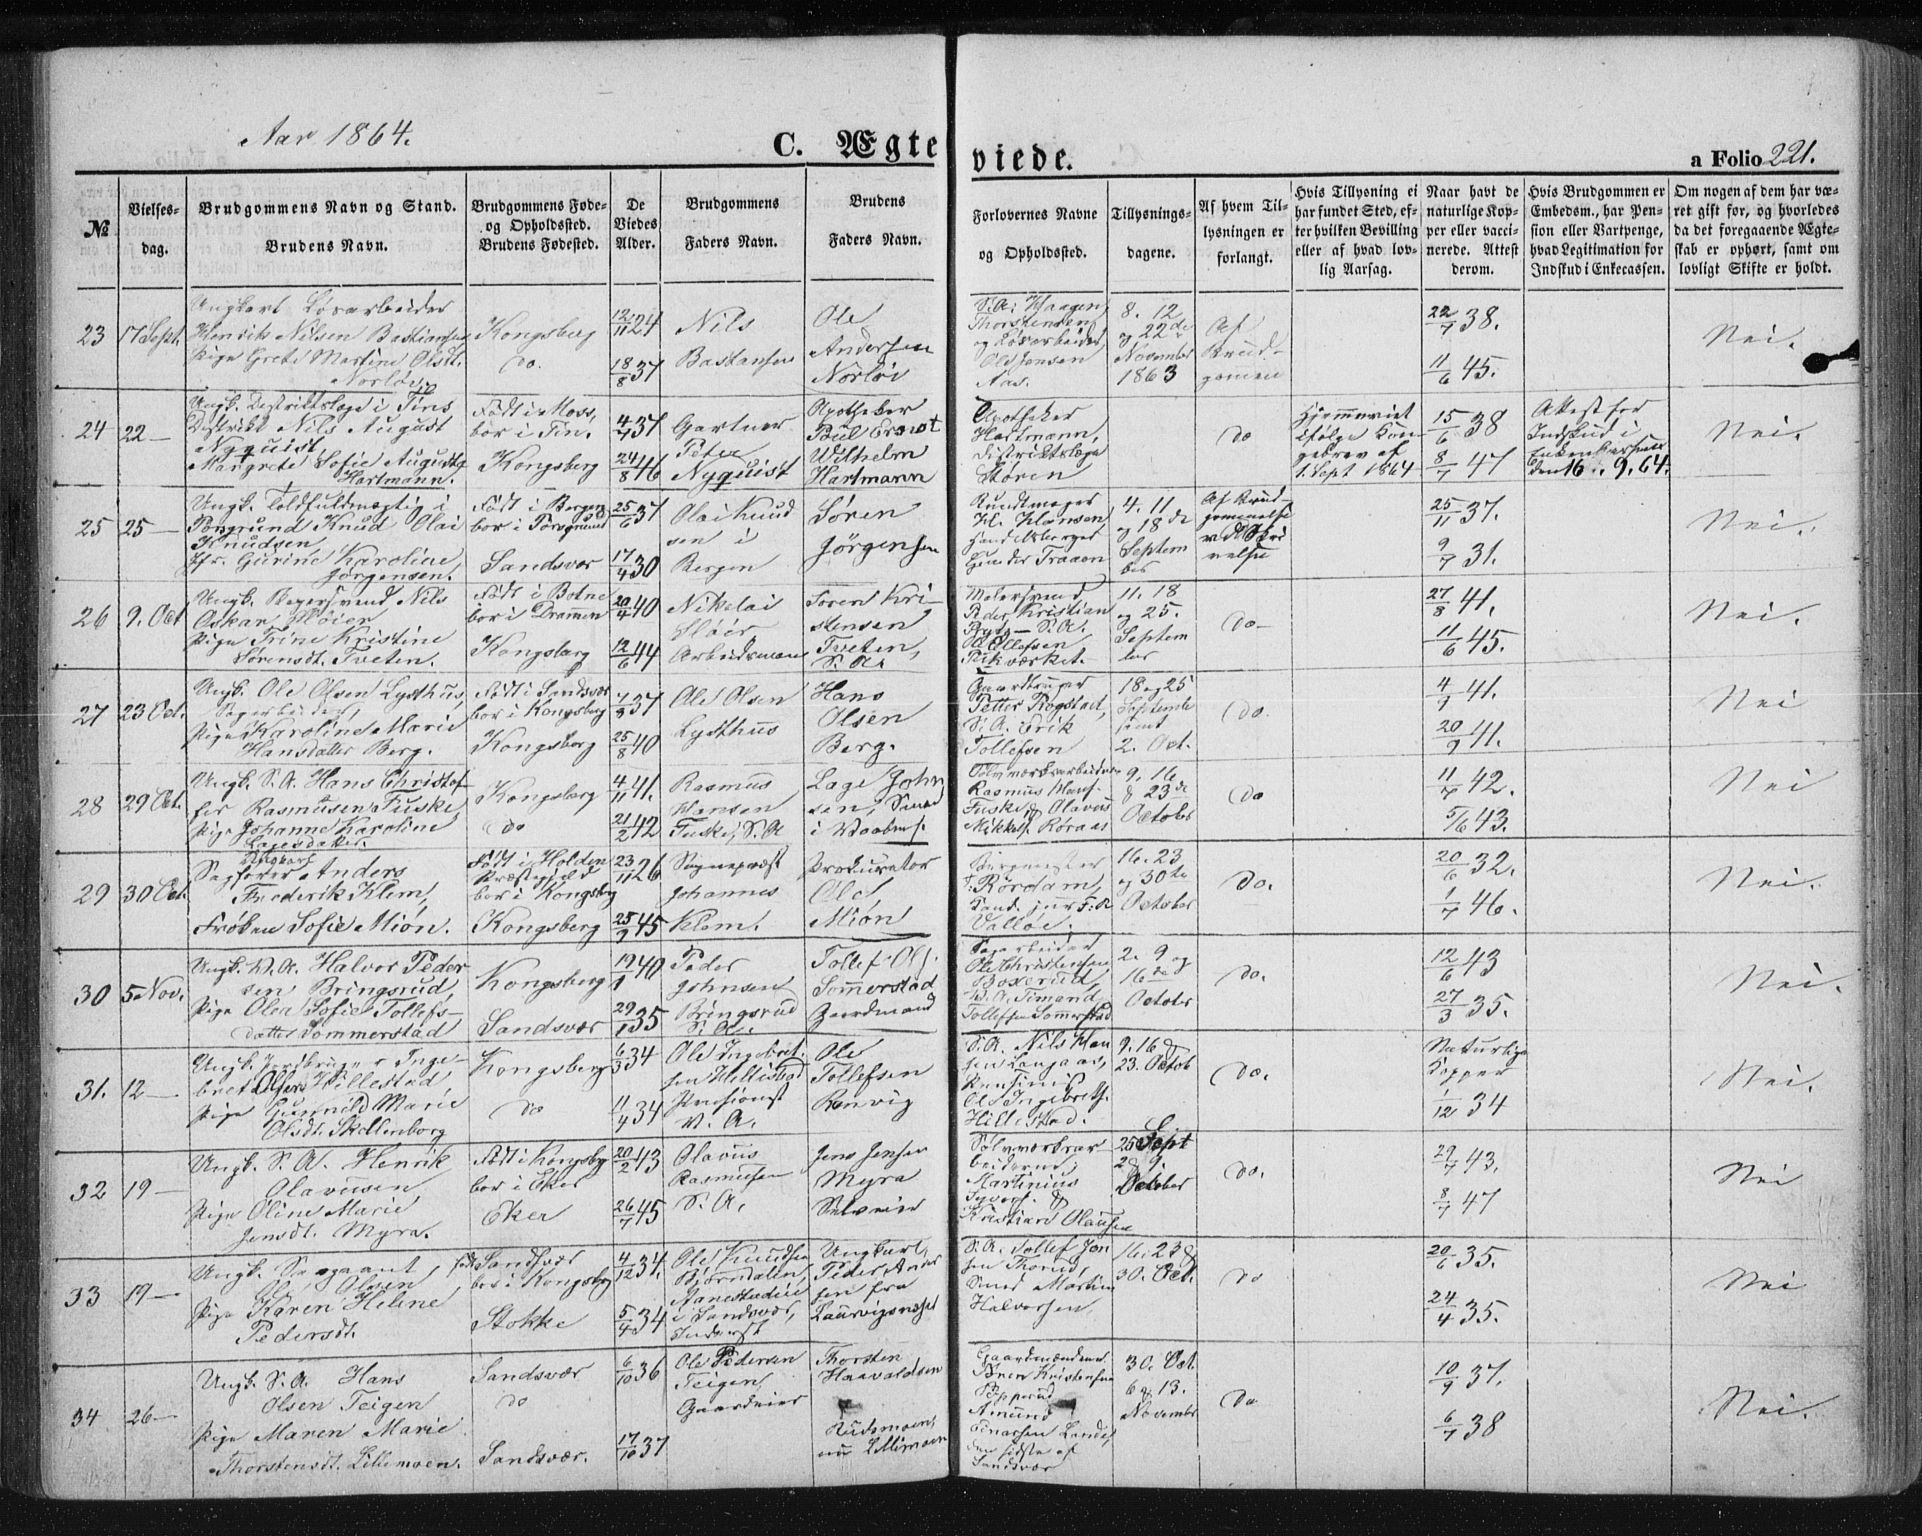 Aar 1864.
C. Ægte viede.
a Folio 221.
№
Vielses-
dag.
Brudgommens Navn og Stand.
Brudens Navn.
Brudgommens Føde-
og Opholdssted.
Brudens Fødested.
De
Viedes
Alder.
Brudgommens
Faders Navn.
Brudens
Faders Navn.
Forlovernes Navne
og Opholdssted.
Tillysnings-
dagene.
Af hvem Til-
lysningen er
forlangt.
Hvis Tillysning ei
har fundet Sted, ef-
ter hvilken Bevilling
eller af hvad lov-
lig Aarsag.
Naar havt de
naturlige Kop-
per eller vacci-
nerede. Attest
derom.
Hvis Brudgommen er
Embedsm., har Pen-
sion eller Vartpenge,
hvad Legitimation for
Indskud i Enkecassen.
Om nogen af dem har væ-
ret gift før, og hvorledes
da det foregaaende Ægte-
skab er ophørt, samt om
lovligt Skifte er holdt.
23
17 Sept.
Ungkarl Løsarbeider
Henrik Nilsen Bastiansen
Pige Grete Martine Olsdt.
Norløi
Kongsberg
do.
12/11 24
18/8 37
Nils
Bastansen
Ole
Andersen
Norløi
S. A. Haagen
Thorstensen
og Løsarbeider
Ole Jensen
Aas.
8. 12
og 22de
November
1863
Af
Brud-
gommen
22/7 38.
11/6 45.
Nei.
24
22 —
Ungk. Distriktslæge i Tins
Distrikt Nils August
Nyquist
Margrete Sofie Augusta
Hartmann.
Født i Moss,
bor i Tin.
Kongsberg
4/7 37
24/8 46
Gartner
Peter
Nyquist
Apotheker
Poul Ernst
Wilhelm
Hartmann
Apotheker
Hartmann,
Distriktslæge
Støren
do
Hjemmeviet
ifølge Kon-
gebrev af
1. Sept 1864
15/6 38
8/7 47
Attest for
Indskud i
Enkenkassen
den 16. 9. 64.
Nei.
25
25 —
Ungk. Toldfuldmægtig i
Porsgrund Knud Olai
Knudsen
Jfr. Gurine Karoline
Jørgensen.
Født i Bergen
bor i Porsgrund
Sandsvær
25/6 37
17/4 30
Olai Knud
sen i
Bergen
Søren
Jørgensen
Buntmager
H. Hansen
Handelsborger
Gunder Traaen
4. 11
og 18de
Septem
ber
25/11 37.
9/7 31.
Nei.
26
9. Oct
Ungk. Bagersvend Nils
Oskar Høier
Pige Trine Kristine
Sørensdt. Tveten.
Født i Botne
bor i Drammen
Kongsberg
20/4 40
12/6 44
Nikolai
Arbeidsman
Søren Kri-
stensen
Tveten,
S. A.
Malersvend
Peder Kristian
Bryty — S. A.
Ollefsen
11. 18
og 25.
Septem
ber
do —
27/8 41.
11/6 45.
Nei.
27
23 Oct.
Ungk. Ole Olsen Lysthus,
Sagarbeider,
Pige Karoline Marie
Hansdatter Berg.
Født i Sandsvær
bor i Kongsberg
Kongsberg
7/8 37
25/8 40
Ole Olsen
Lysthus
Hans
Olsen
Berg.
Gaardbruger
Petter Rogstad,
S. A. Erik
Tollefsen
18 og 25
Septembe
samt
2. Oct.
do.
4/9 41.
20/9 41.
Nei
28
29 Oct.
Ungk. S. A. Hans Christof-
fer Rasmusen Fuske,
Pige Johanne Karoline
Lagesdatter.
Kongsberg
do
4/11 41.
21/2 42
Rasmus
Hansen
Fuske, S. A
Lage John
sen, Smed
i Vaabenf.
Sølvværksarbeiderne
Rasmus Hans.
Fuske & Olavus
Mikkels. Røraas
9. 16
& 23de
October
do
11/7 42.
5/6 43.
Nei
29
30 Oct.
Sagfører Ungkarl Anders
Frederik Klem,
Frøken Sofie Miøn.
Født i Holden
Præstegjeld
bor i Kongsberg
Kongsberg
23/11 26
25/9 45
Sognepræst
Johannes
Klem.
Prokurator
Ole
Miøn
Rördam
Cand. jur
Valløe.
16. 23
og 30te
October
do.
20/6 32.
1/7 46.
Nei.
30
5 Nov.
Ungk. V. A. Halvor Peder
sen Bringsrud,
Pige Olea Sofie Tollefs-
datter Sommerstad
Kongsberg
Sandsvær
19/1 40
29/1 35
Peder
Johnsen
Bringsrud
S. A.
Tollef Ols.
Sommerstad
Gaardmand
Sagarbeider
Ole Christensen
Boserud,
V. A. Simand
Tollefsen Sommerstad
2. 9 og
16de
October
do.
12/6 43
27/3 35.
Nei.
31.
12 —
Ungk. Inge-
bret Olsen Hillestad,
Pige Gunnild Marie
Olsdt. Skollenborg
Kongsberg
do
6/3 34
11/4 34
Ole Ingebret.
sen Hillestad
Pensionist
V. A.
Ole
Tollefsen
Renvig
S. A. Nils Han
sen Langaas,
Pensionist
Ole Ingebrets.
Hillestad.
9. 16 &
23. Octob
do.
Naturlige
Kopper
1/12 34
Nei.
32
19 —
Ungk. S. A. Henrik
Olavusen
Pige Oline Marie
Jensdt. Myra.
Født i Kongsbg
bor i Eker
Eker
20/2 43
26/7 45
Olavus
Rasmusen
S. A.
Jens Jensen
Myra
Selveier
Sølvværksar-
beiderne
Martinius
Syvers. &
Kristian Olausen
25 Sept
2 & 9.
October
do.
29/7 43.
8/7 47
Nei
33
19 —
Ungk.
Ole Olsen
Pige Karen Helene
Pedersdt.
født Sandsvær
bor i Kongsberg
Stokke
4/12 34.
5/4 34
Ole Knudsen
Bjørndalen,
i Sandsvær,
Inderst
Ungkarl,
Peder Ander
sen fra
Laurvigsnæsset
S. A. Tollef Jon
sen Thorud,
Smed Martin
Halvorsen,
16. 23 &
30. Oct.
do
20/6 35.
24/4 35.
Nei
34
26 —
Ungk. S. A. Hans
Olsen Teigen
Pige Maren Marie
Thorstensdt. Lillemoen.
Sandsvær
do
Sandsvær.
6/10 36
17/10 37
Ole Pedersen
Teigen
Gaardeier
Thorsten
Haavaldsen
Rudsmoen,
nu Lillimoen
Gaardmændene
Bner Kristensen
Amund
Einarsen Lande,
den sidste af
Sandsvær
30. Oct.
6 & 13.
November
do
10/9 37.
6/7 38
Nei.